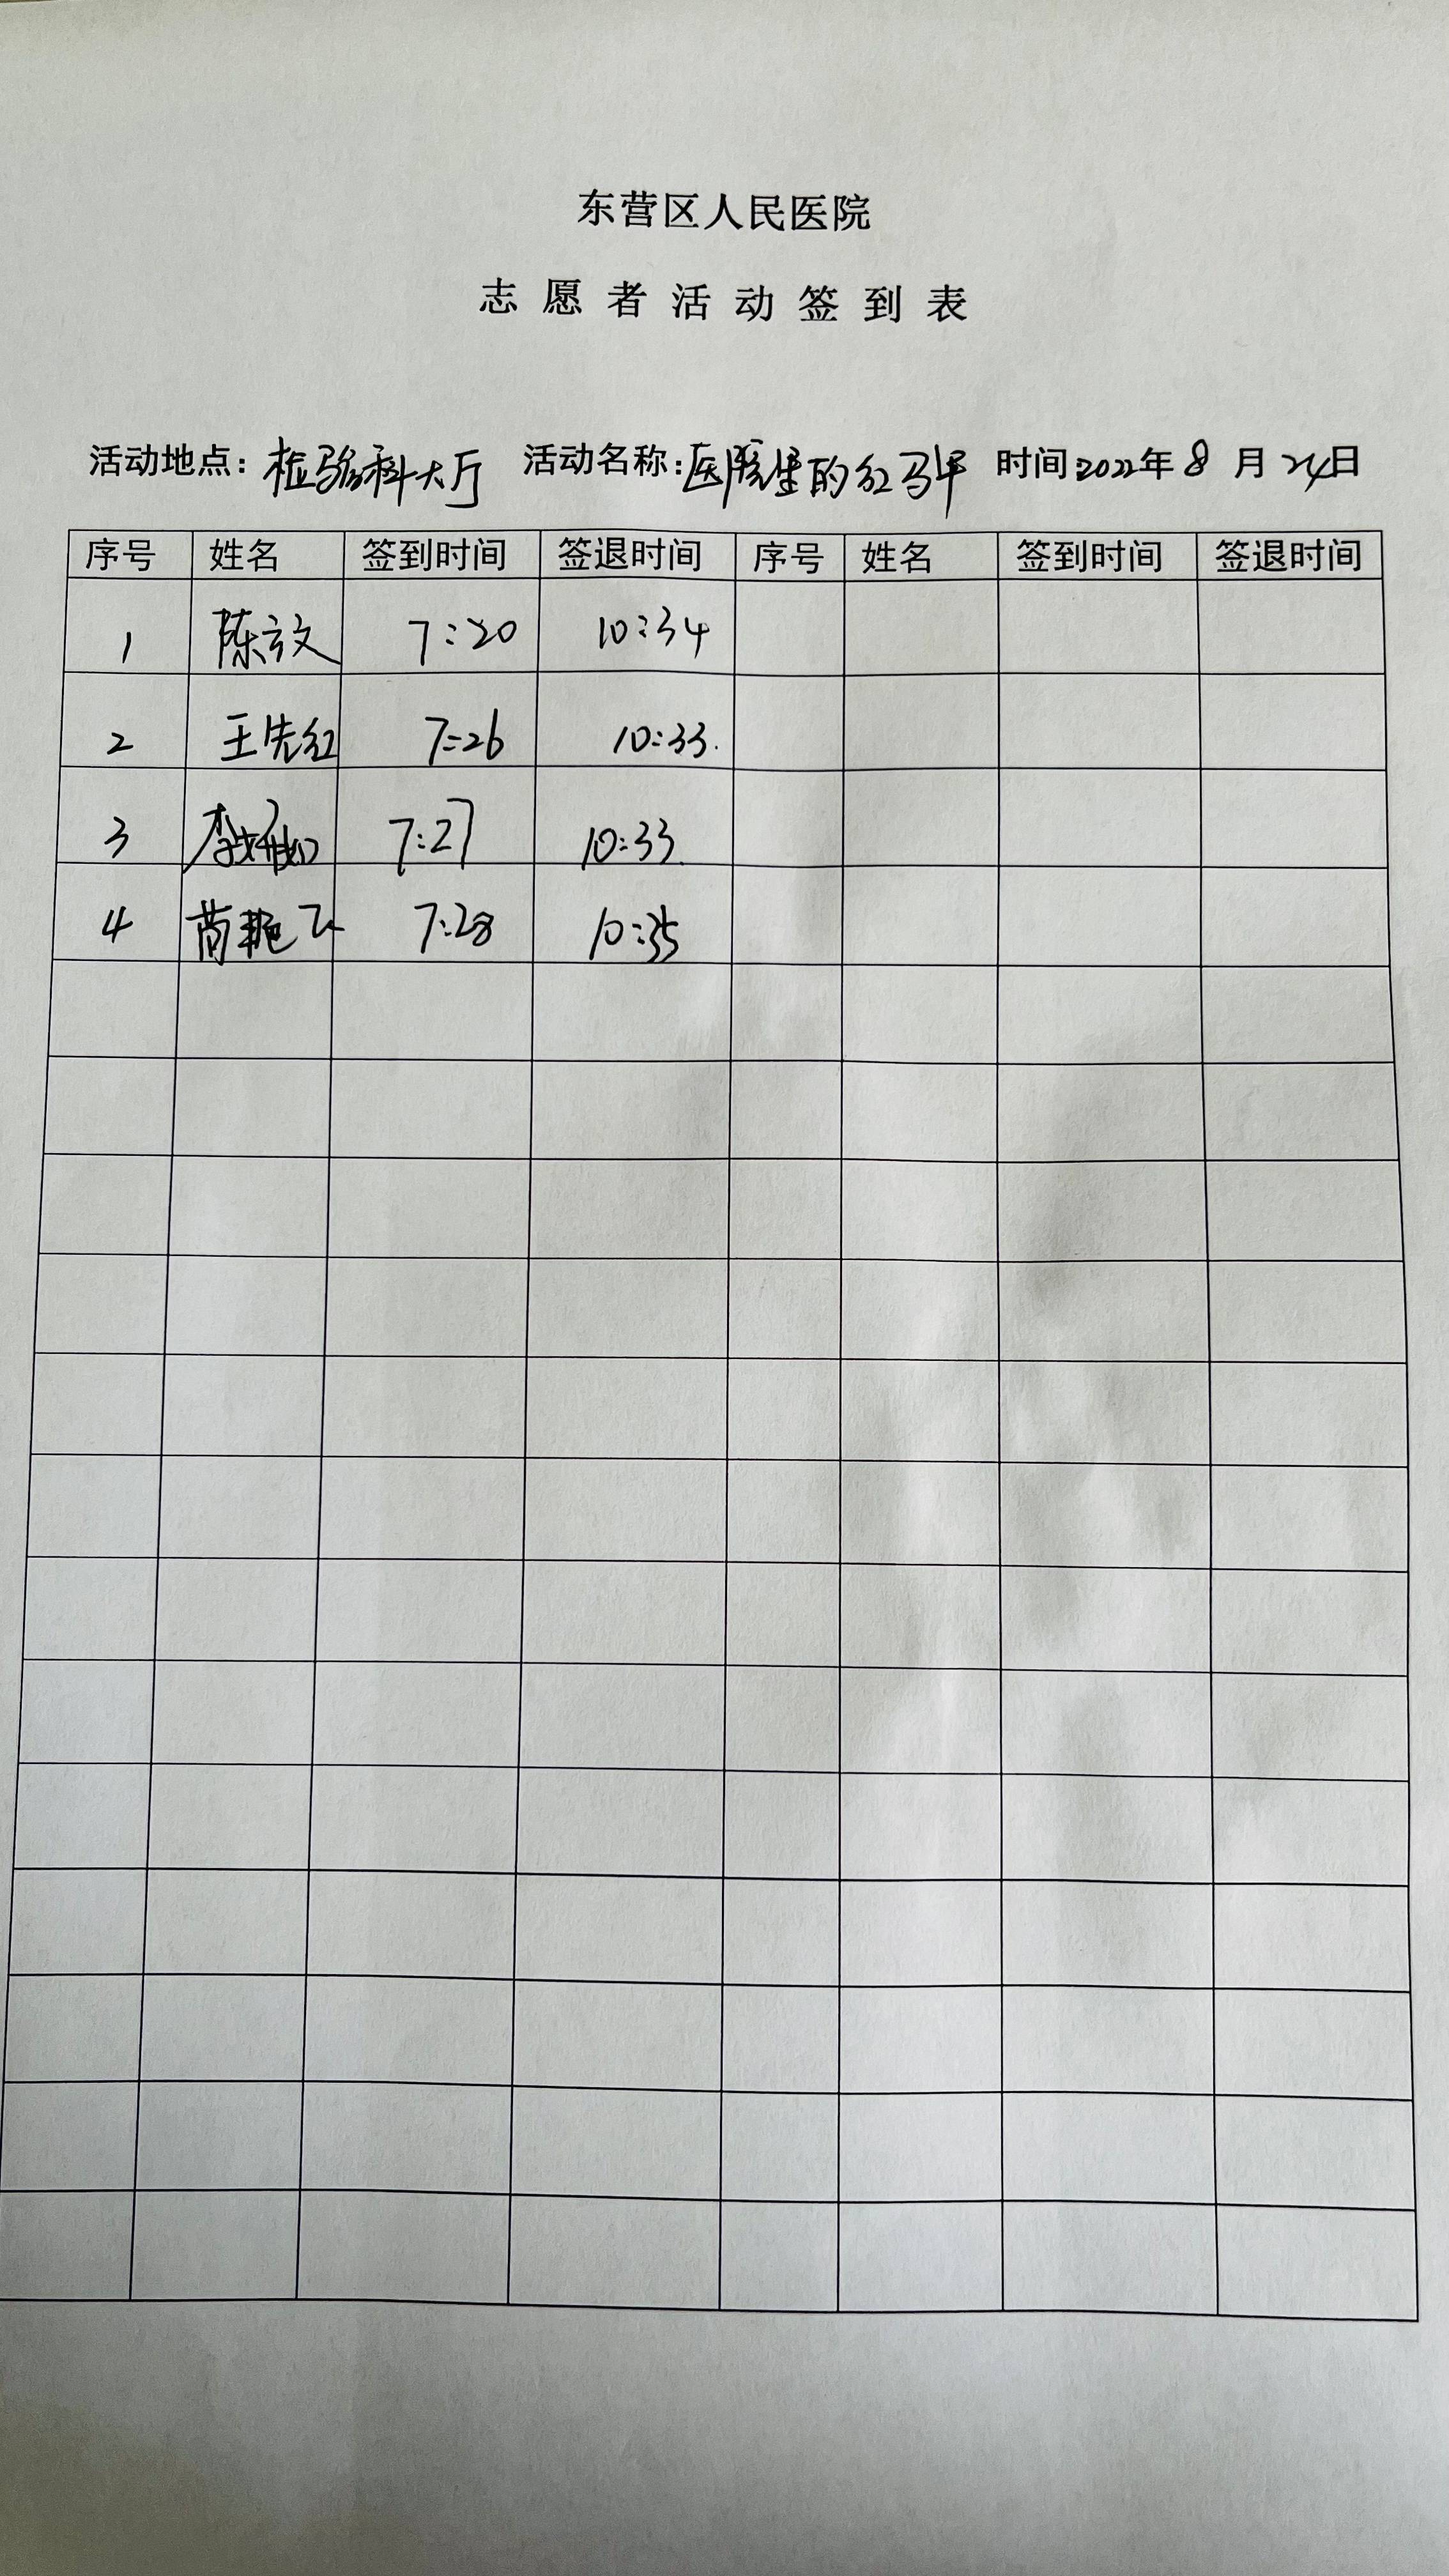 东营区人民医院
志愿者活动签到表
活动地点：检验科大厅 活动名称：医院里的红马甲 时间2022年8月24日
序号 姓名 签到时间 签退时间 序号 姓名 签到时间 签退时间
1 陈文 7:20 10:34
2 王先红 7:26 10:33
3 李 7:27 10:33
4 艳 7:28 10:35